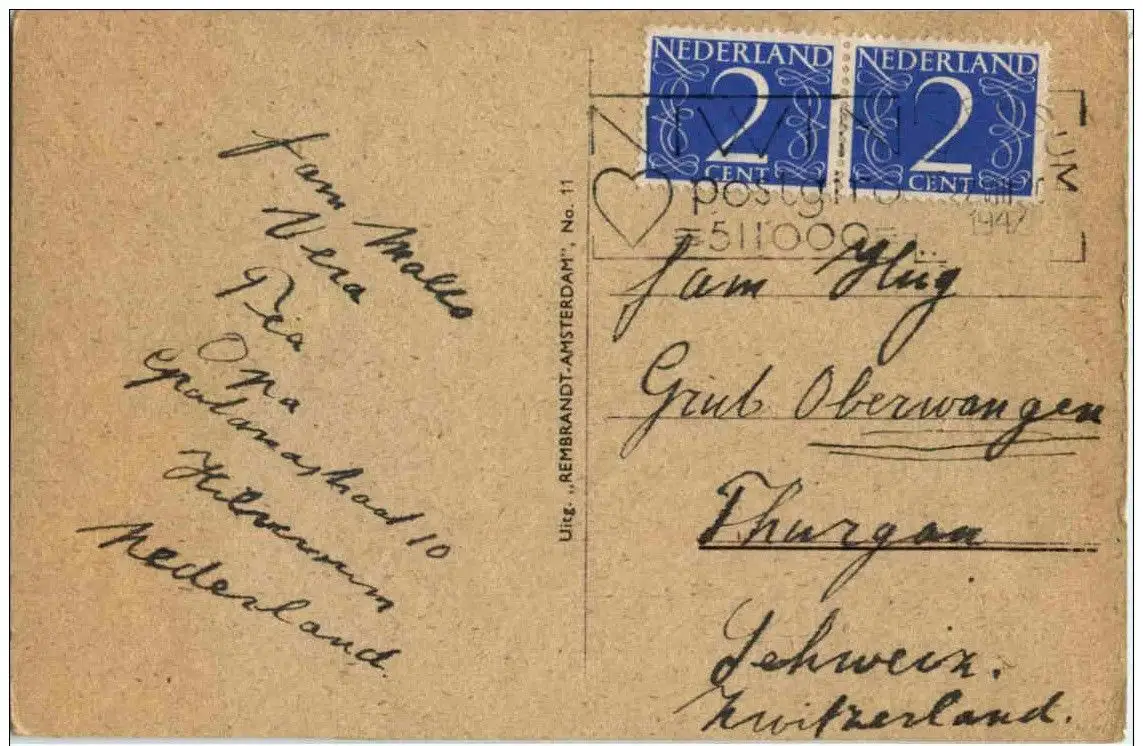 fam Mallo
Vera
Pia
Opa
10
Hilversum
Nederland.
Uitg. „REMBRANDT-AMSTERDAM”, No. 11
NEDERLAND
2
CENT
NEDERLAND
2
CENT
NIWIN
postgiro
=511000=
1947
fam Hug
Grub Oberwangen
Thurgau
Schweiz.
Zwitzerland.